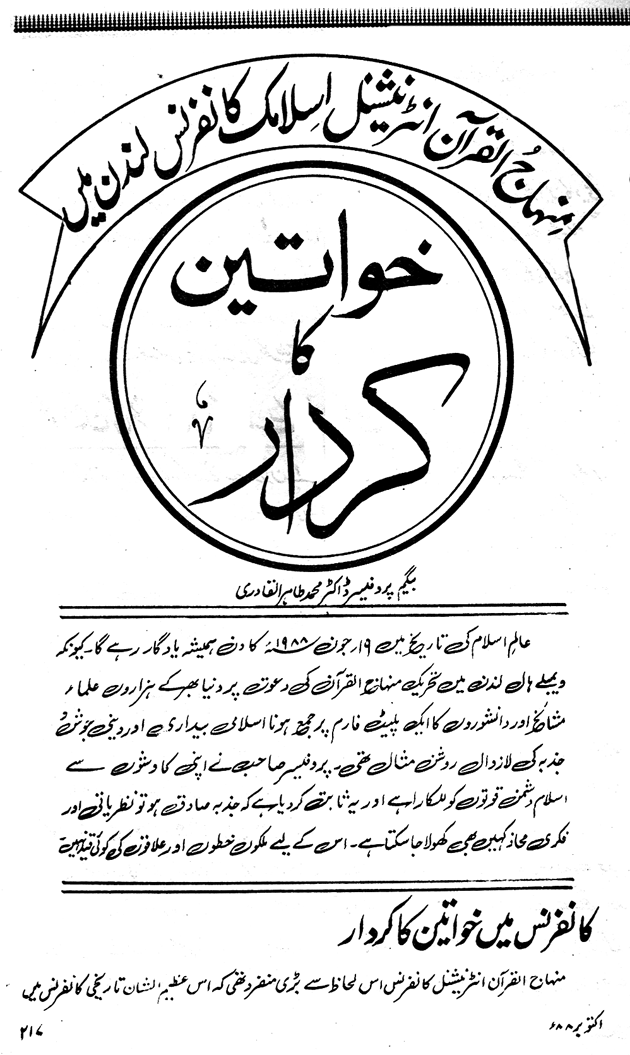 منہاج القرآن انٹرنیشنل اسلامک کانفرنس لندن میں
خواتین
کا
کردار
بیگم پروفیسر ڈاکٹر محمد طاہر القادری
عالم اسلام کی تاریخ میں ۱۹ر جون ۱۹۸۸ء کا دن ہمیشہ یادگار رہے گا۔ کیونکہ
ویمبلے ہال لندن میں تحریک منہاج القرآن کی دعوت پر دنیا بھر کے ہزاروں علماء
مشائخ اور دانشوروں کا ایک پلیٹ فارم پر جمع ہونا اسلامی بیداری اور دینی جوش و
جذبہ کی لازوال روشن مثال تھی۔ پروفیسر صاحب نے اپنی کاوشوں سے
اسلام دشمن قوتوں کو للکارا ہے اور یہ ثابت کر دیا ہے کہ جذبہ صادق ہو تو نظریاتی اور
فکری محاذ کہیں بھی کھولا جا سکتا ہے۔ اس کے لیے ملکوں خطوں اور علاقوں کی کوئی قید نہیں
کانفرنس میں خواتین کا کردار
منہاج القرآن انٹرنیشنل کانفرنس اس لحاظ سے بڑی منفرد تھی کہ اس عظیم الشان تاریخی کانفرنس میں
اکتوبر ۸۸ء
۲۱۷